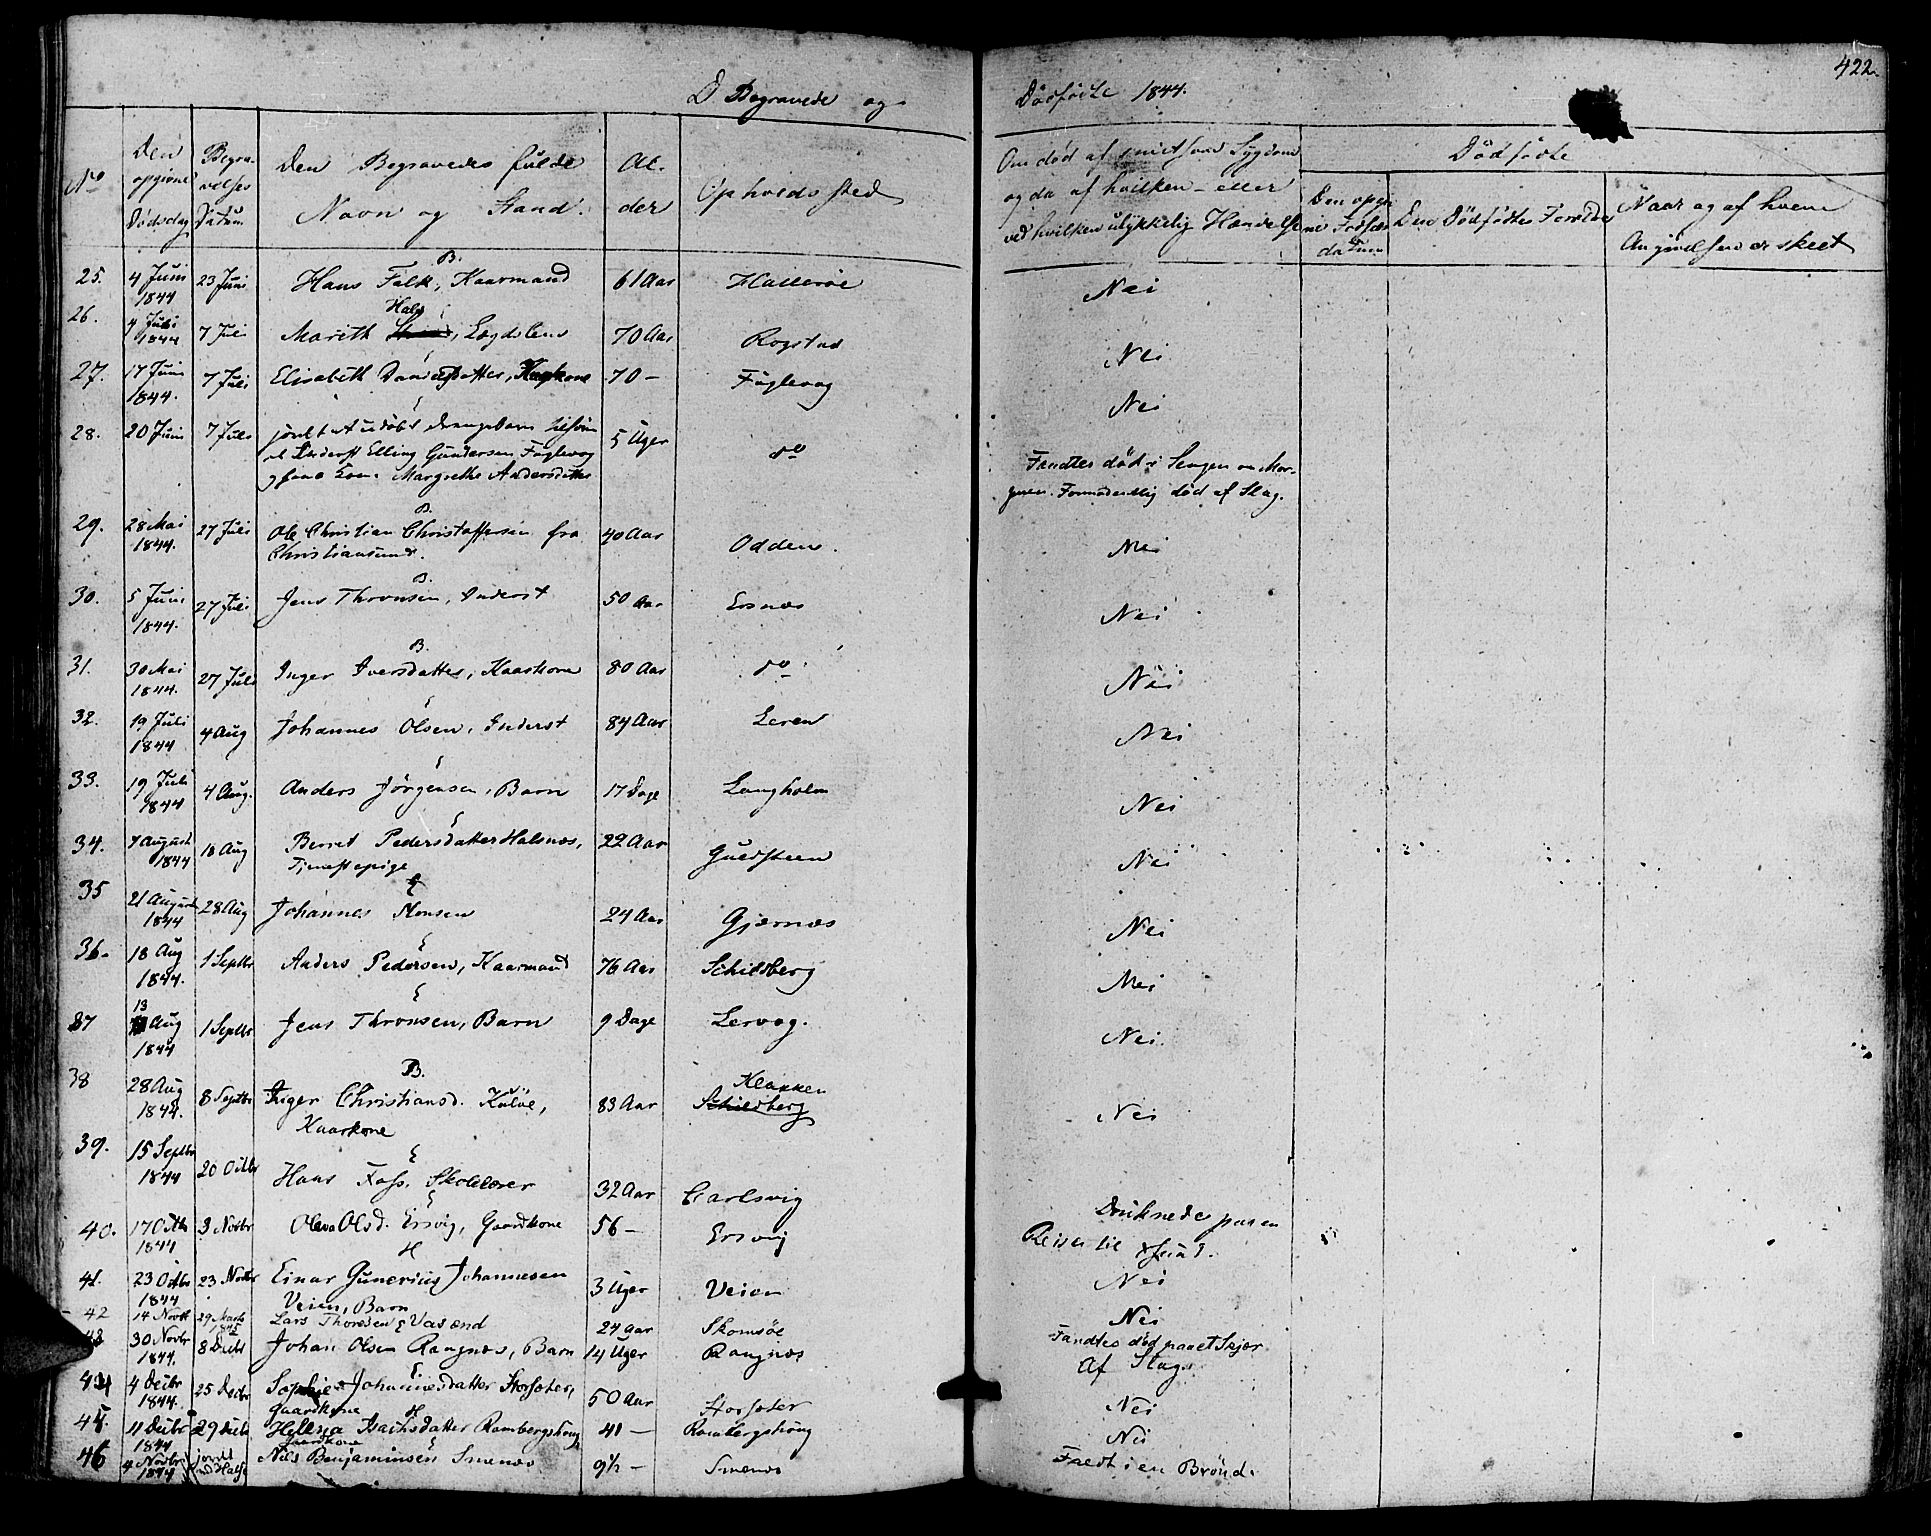 422.
D Begravede og
Dödfödte 1844.
No
Den opgivne Dödsdag
Begravelses Datum
Den Begravedes fulde Navn og Stand.
Alder
Opholdssted
Om död af smitsom Sygdom og da af hvilken - eller ved hvilken ulykkelig Hændelse
Dödfödte
Den Dödfödtes Forældre
Naar og af hvem Angivelsen er skeet
25. 4 Juni 1844 23 Juni Hans Falk, Kaarmand B. 61 Aar Halleröe Nei
26. 4 Juli 1844 7 Juli Marith Hals, Lægdslem 70 Aar Rogstad Nei
27. 17 Juni 1844. 7 Juli Elisabeth 70 - Fuglevog Nei
28. 20 Juni 7 Juli Drengebarn
Inderst Elling Gundersen Fuglevog
Kone Margrethe Andersdatter 5 Uger do Fandtes död i Sengen om Morgenen. Formodentlig död af Slag.
29. 28 Mai 1844. 27 Juli B. Ole Christian Christoffersen fra
Christiansund. 40 Aar Odden. Nei
30. 5 Juni 1844. 27 Juli B. Jens Thronsen, Inderst 50 Aar Ersnæs Nei
31. 30 Mai 1844. 27 Juli B. Inger Iversdatter, Kaarkone 80 Aar do Nei
32. 19 Juli 1844 4 Aug Johannes Olsen, Inderst 84 Aar Leren Nei
33. 19 Juli 1844 4 Aug. Anders Jörgensen, Barn 17 Dage Langholm Nei
34. 7 August 1844 18 Aug Berret Pedersdatter Halsnæs,
Tjenestepige 22 Aar Guldsteen Nei
35 21 August 1844 28 Aug Johannes Monsen 24 Aar Gjærnæs Nei
36. 18 Aug 1844. 1 Septbr Anders Pedersen, Kaarmand 76 Aar Schildberg Nei
37 13 Aug 1844 1 Septbr Jens Thronsen, Barn 9 Dage Lervog. Nei
38 28 Aug 1844. 8 Septbr B. Inger Christiansd. Kulöe,
Kaarkone 83 Aar Klakken Schildberg Nei
39. 15 Septbr 1844 20 Octbr Hans Foss, Skolelærer 32 Aar Carlsvig
40. 17 Octbr 1844 3 Novbr Olava Olsd. Ersvig, Gaardkone 56 - Ersvig Druknede paa en
Reise til
41. 23 Octbr 1844 23 Novbr H Einar Gunerius Johannesen
Veien, Barn 3 Uger Veien Nei
42 14 Novbr 29 Marts 1845 Lars Thoresen Vasænd 24 Aar Skomsöe Nei
43 30 Novbr 1844. 8 Decbr Johan Olsen Rangnæs, Barn 14 Uger Rangnæs Fandtes död paa et Skjær
Af Slag
44 4 Decbr 1844. 25 Decbr Sophie Johannesdatter Storsæter,
Gaardkone 50 Aar Storsæter Nei
45. 11 Decbr 1844 29 Decbr H Hellena Isachsdatter Rambergshoug
Gaardkone 41 - Rambergshoug Nei
46 4 Novbr 1844 jordet ved Halse Nils Benjaminsen Smenæs 9½ - Smenæs Faldt i en Brönd.